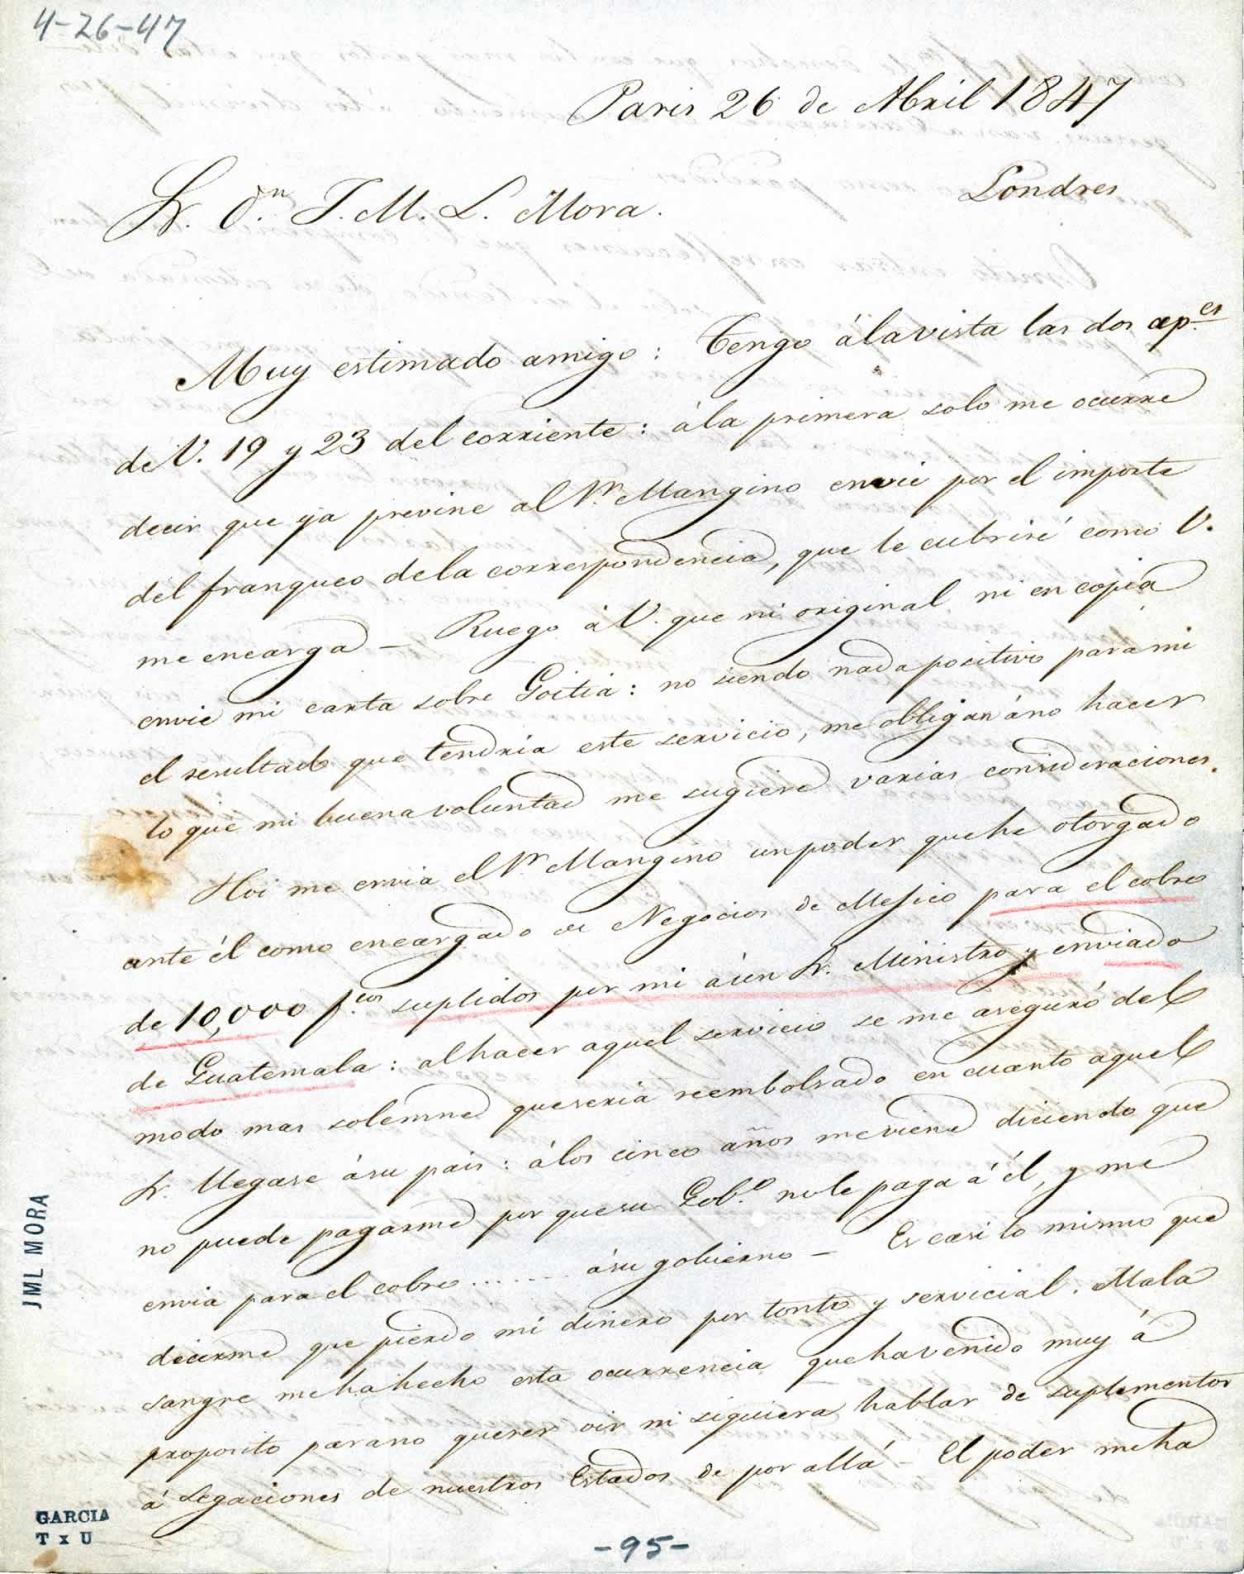 4-26-47
Paris 26 de Abril 1847
Londres
Sr. Dn. J. M. L. Mora.
Muy estimado amigo: Tengo á la vista las dos ap.es
de V. 19 y 23 del corriente: á la primera solo me ocurre
decir que ya previne al Sr. Mangino envie por el importe
del franqueo de la correspondencia, que le cubriré como V.
me encarga — Ruego á V. que ni original ni en copia
envie mi carta sobre Goitia: no siendo nada positivo para mi
el resultado que tendria este servicio, me obligan á no hacer
lo que mi buena voluntad me sugiere varias consideraciones.
Hoi me envia el Sr. Mangino un poder que he otorgado
ante él como encargado de Negocios de Mejico para el cobro
de 10,000 f.cos suplidos por mi á un Sr. Ministro y enviado
de Guatemala: al hacer aquel servicio se me aseguró del
modo mas solemne que seria reembolsado en cuanto aquel
Sr. llegase á su pais: á los cinco años me viene diciendo que
no puede pagarme por que su Gob.o no le paga á él, y me
envia para el cobro ....... á su gobierno — Es casi lo mismo que
decirme que pierdo mi dinero por tonto y servicial. Mala
sangre me ha hecho esta ocurrencia que ha venido muy á
proposito para no querer oir ni siquiera hablar de suplementos
á Legaciones de nuestros Estados de por allá — El poder me ha
JML MORA
GARCIA
T x U
-95-